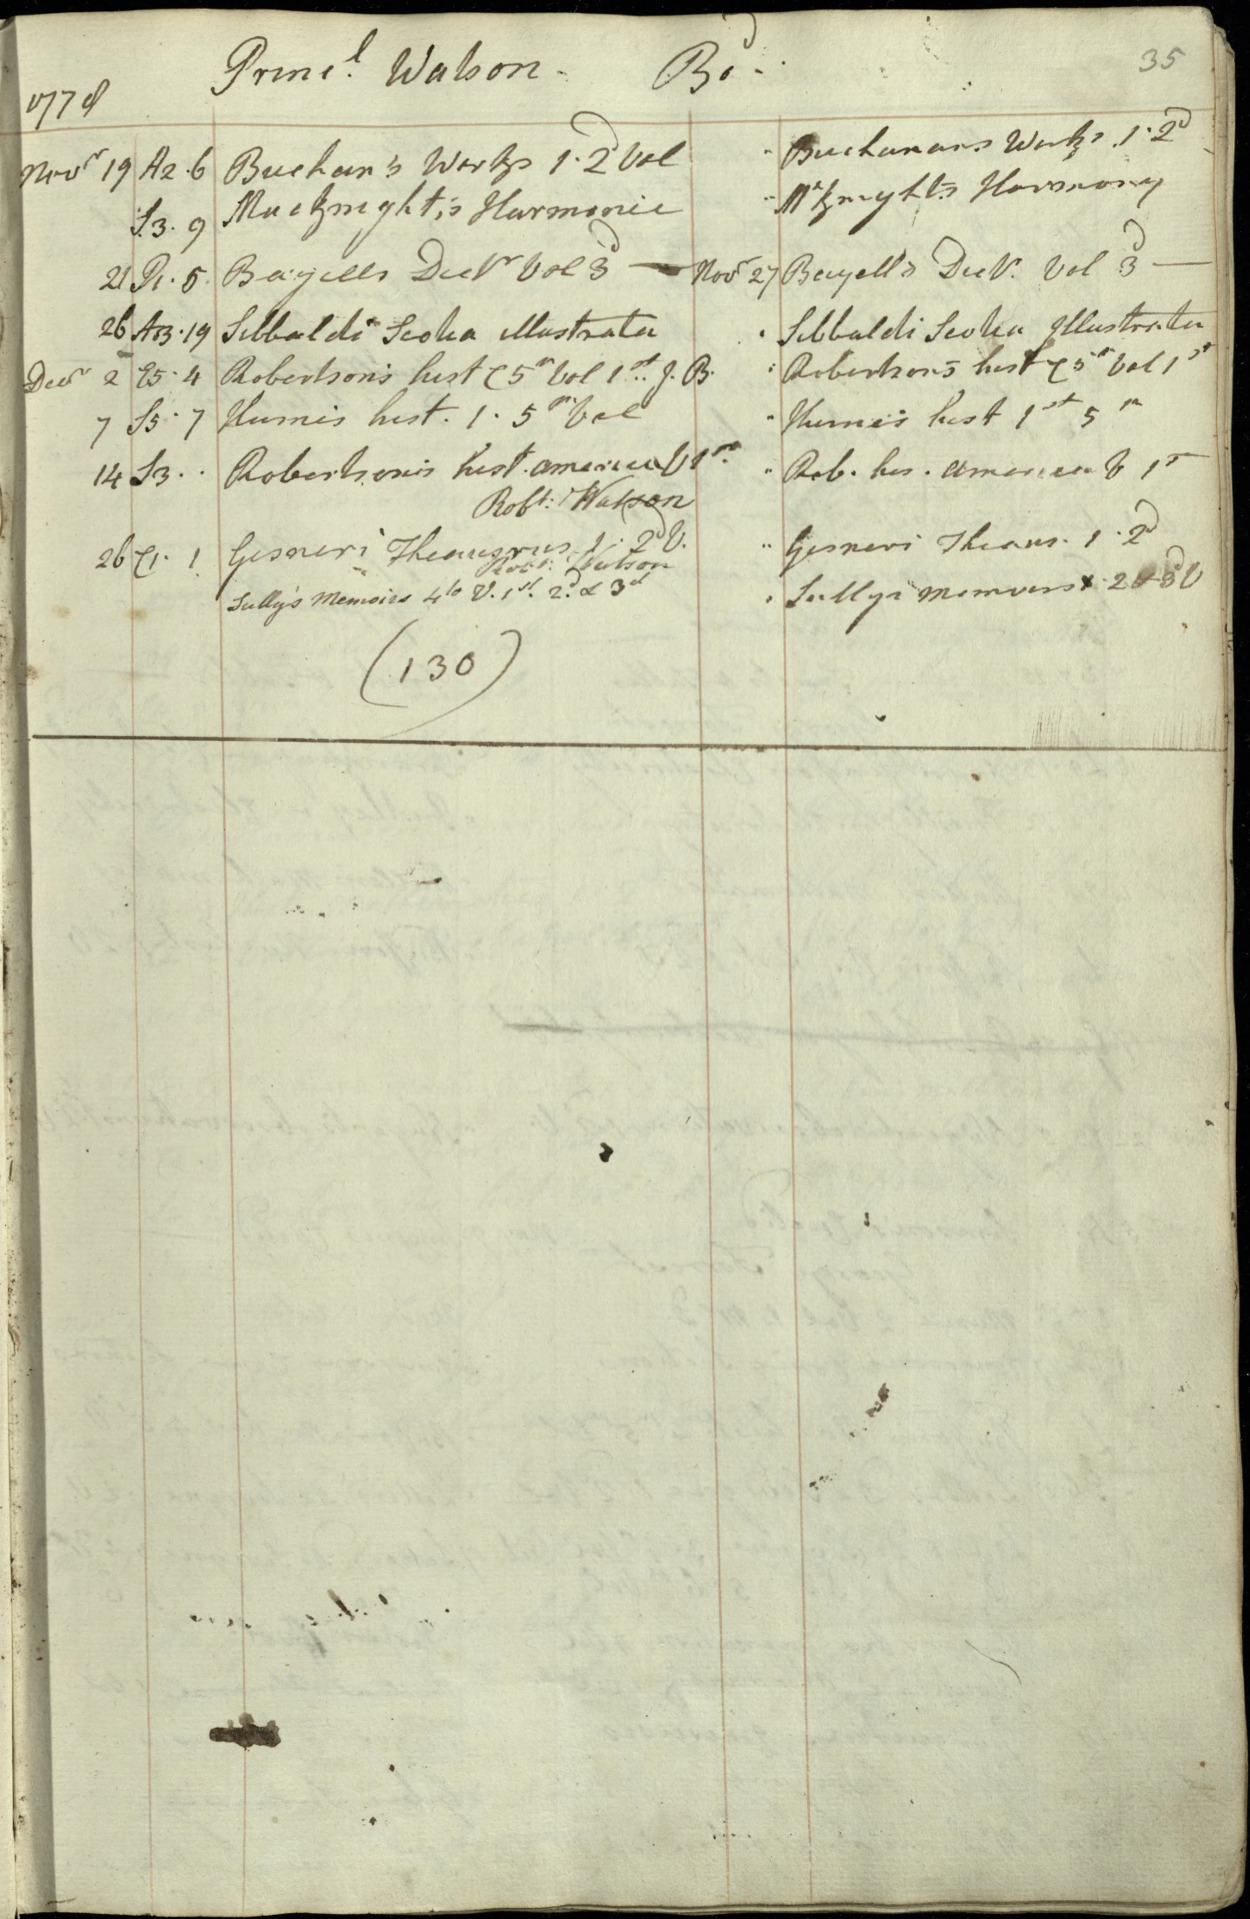 35
Princ.l Watson. Bd.
1778
Novr 19 A2.6 Buchan's Works 1.2d Vol " Buchanans Works 1.2d
S.3.9 Macknyght's Harmonie " Mcknyght's Harmony
21 P1.5 Bayells Dictr Vol 3d — Novr 27 Bayell's Dict. Vol 3d —
26 A3.19 Sibbaldi Scotia illustrata " Sibbaldi Scotia Illustrata
Decr 2 E5.4 Robertson's hist C 5th Vol 1st. J.B. " Robertson's hist C 5th Vol 1st
7 S5.7 Humes hist. 1. 5th Vol " Humes hist 1st 5th
14 S3.. Robertson's hist. america V 1st " Rob. his. america V 1st
Robt: Watson
26 C1.1 Gesneri Theausrus 1. 2d V. " Gesneri Theaus. 1.2d
Robt: Watson
Sully's Memoirs 4to V. 1st. 2d. & 3d " Sullys memoirs 2 & 3d V
(130)